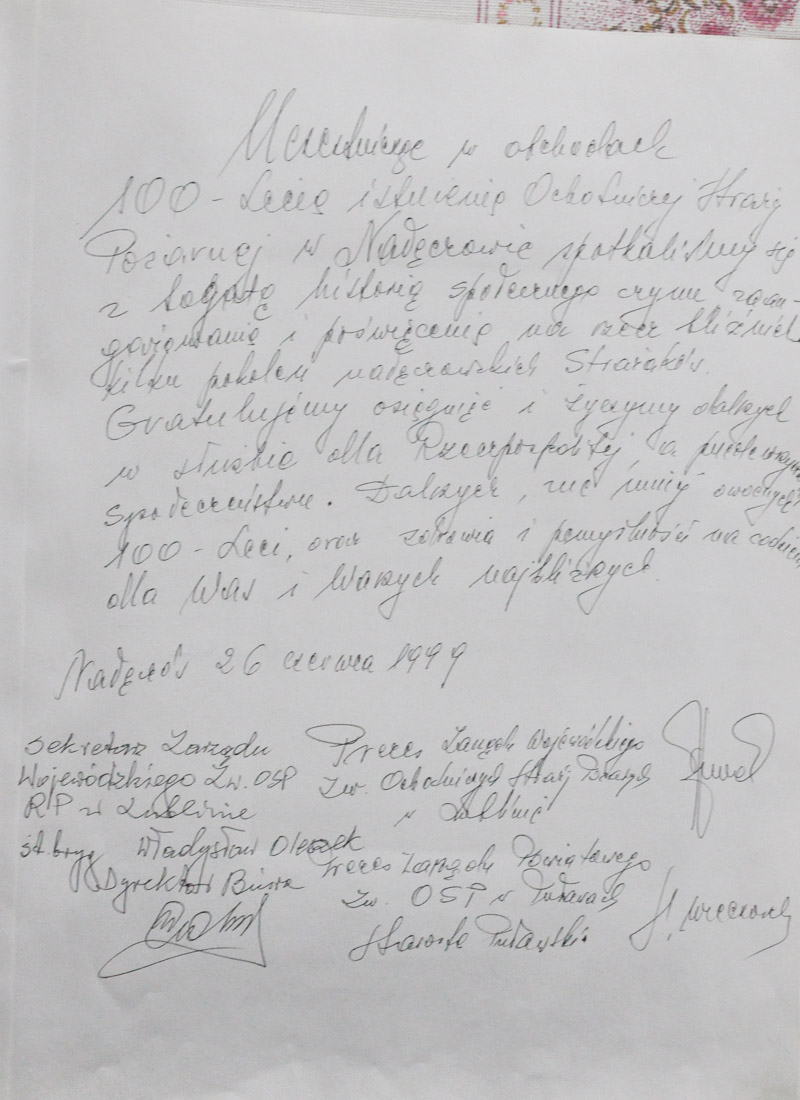 Uczestnicząc w obchodach
100-Lecia istnienia Ochotniczej Straży
Pożarnej w Nałęczowie spotkaliśmy się
z bogatą historią społecznego czynu zaan-
gażowania i poświęcenia na rzecz bliźnich
kilku pokoleń nałęczowskich Strażaków.
Gratulujemy osięgnięć i życzymy dalszych
w służbie dla Rzeczpospolitej, a
społeczeństwu. Dalszych, nie mniej owocnych
100-Leci, oraz zdrowia i pomyślności na codzień
dla Was i Waszych najbliższych.
Nałęczów 26 czerwca 1999
Sekretarz Zarządu
Wojewódzkiego Zw. OSP
RP w Lublinie
st. bryg Władysław Oleszek
Dyrektor Biura
Prezes Zarządu Wojewódzkiego
Zw. Ochotniczych Straży Pożarnych
w Lublinie
Prezes Zarządu Powiatowego
Zw. OSP w Puławach
Starosta Puławski